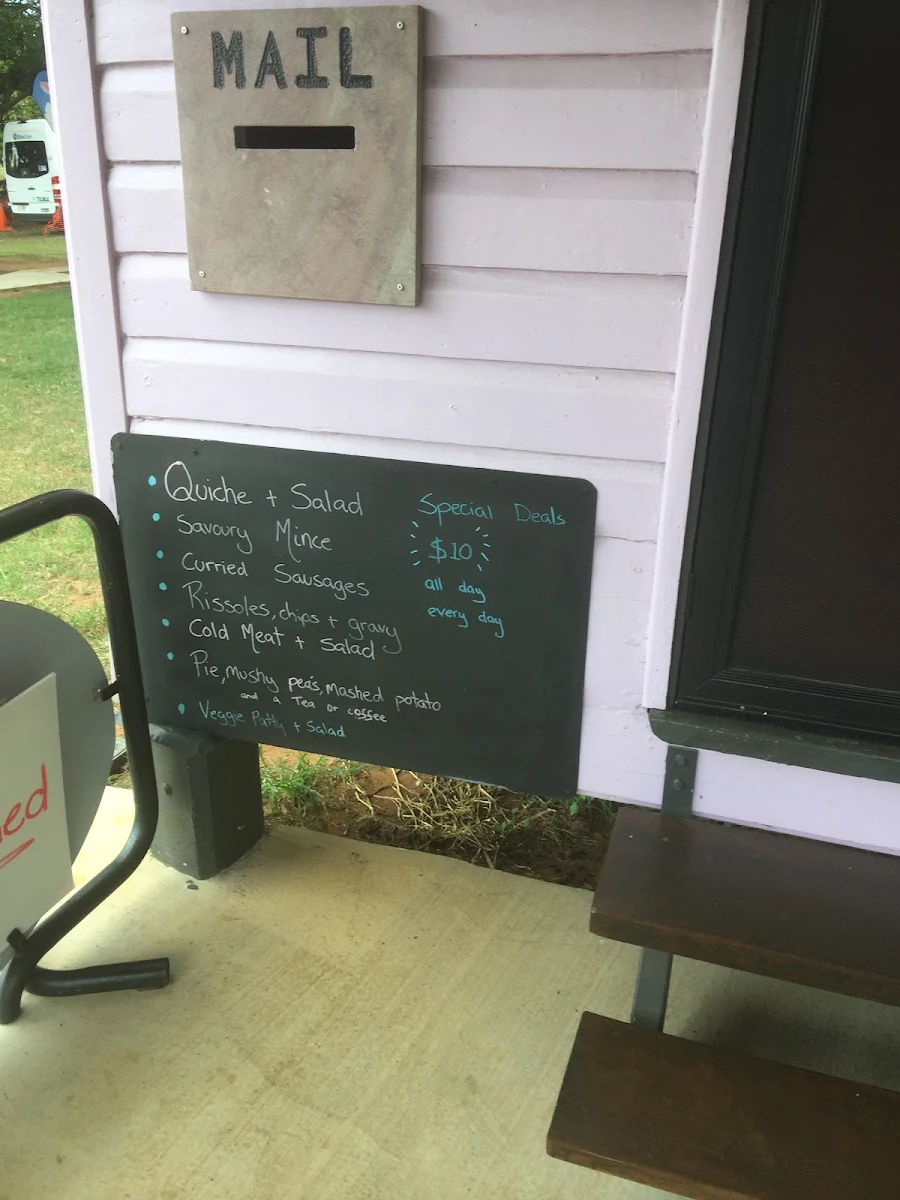 MAIL
Quiche + Salad
Savoury Mince
Curried Sausages
Rissoles, chips + gravy
Cold Meat + Salad
Pie, mushy peas, mashed potato
and a Tea or coffee
Veggie Patty + Salad
Special Deals
$10
all day
every day